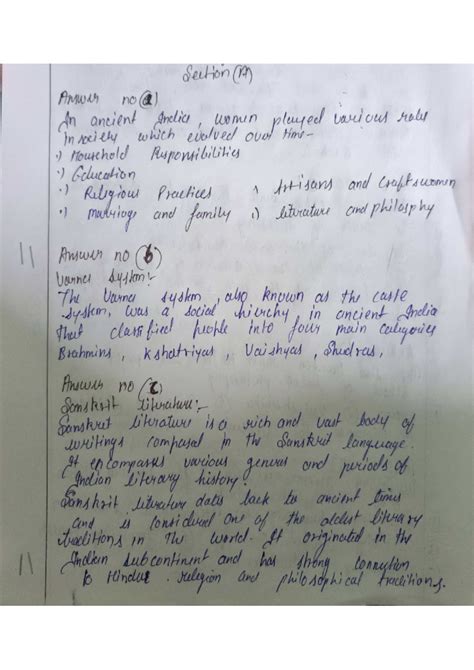 Section (A)
Answer no (a)
In ancient India, women played various roles
in society which evolved over time-
·) Household Responsibilities
·) Education
·) Religious Practices ·) Artisans and Craftswomen
·) marriage and family ·) literature and philosphy
Answer no (b)
Varna System:-
The Varna system, also known as the caste
System, was a social hierchy in ancient India
that classified people into four main categories
Brahmins, Kshatriyas, Vaishyas, Shudras,
Answer no (c)
Sanskrit literature:-
Sanskrit literature is a rich and vast body of
writings composed in the Sanskrit language.
It encompasses various genres and periods of
Indian literary history.
Sanskrit literature dates back to ancient times
and is considered one of the oldest literary
traditions in the world. It originated in the
Indian subcontinent and has strong connection
to Hindu religion and philosophical traditions.